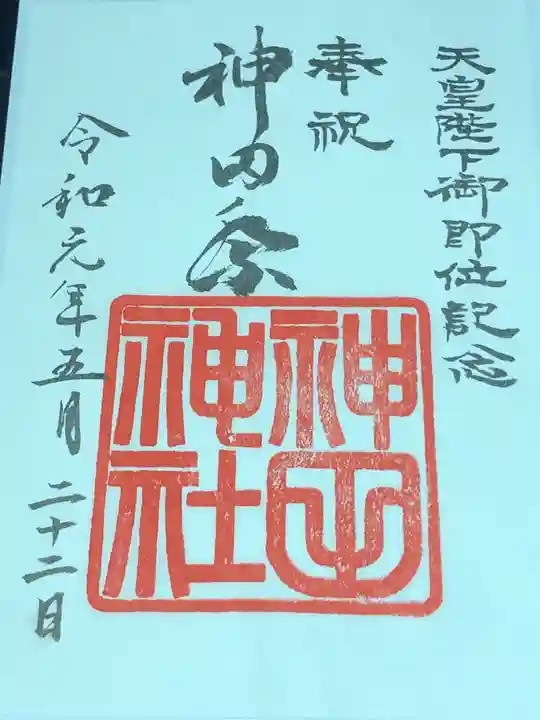 天皇陛下御即位記念
奉祝
神田祭
神田神社
令和元年五月二十二日